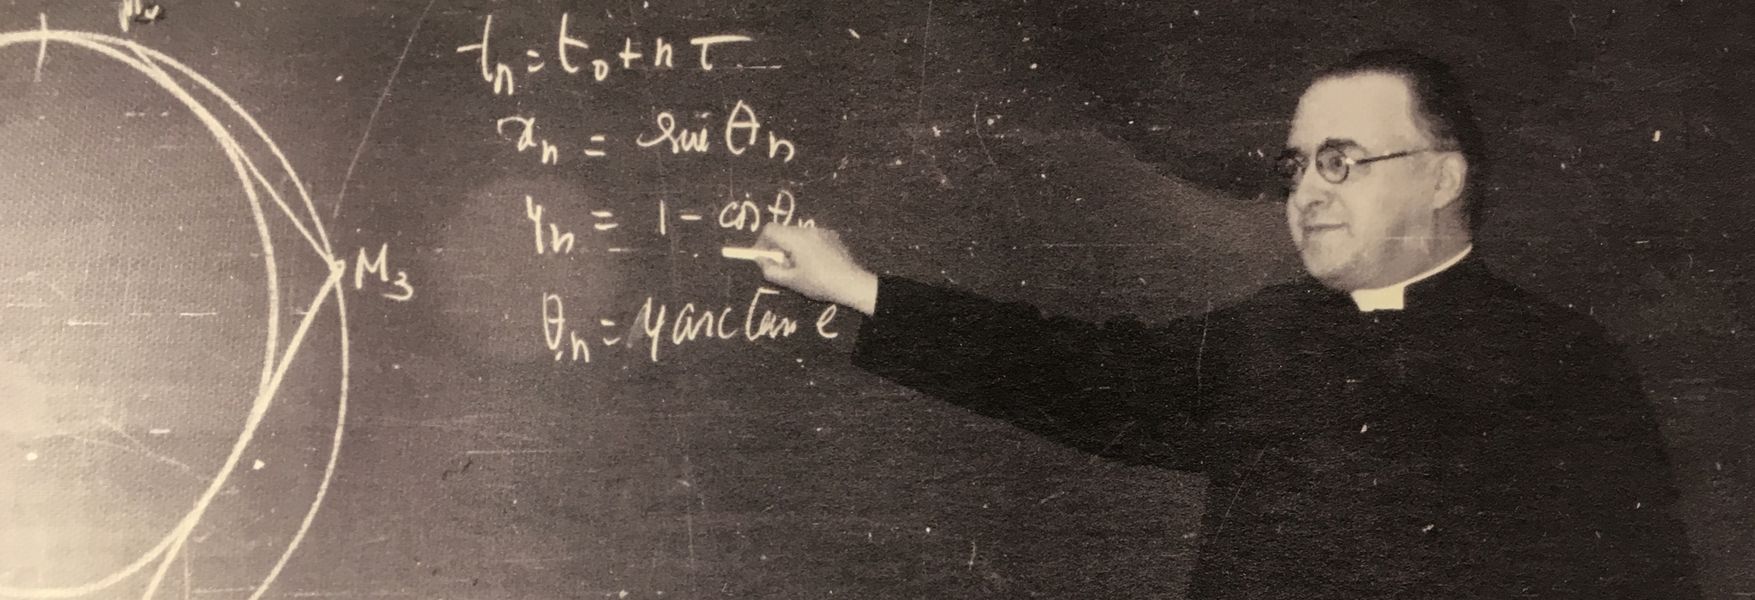 tₙ = t₀ + n τ
xₙ = sin θₙ
yₙ = 1 - cos θₙ
M₃
θₙ = 4 arctan e